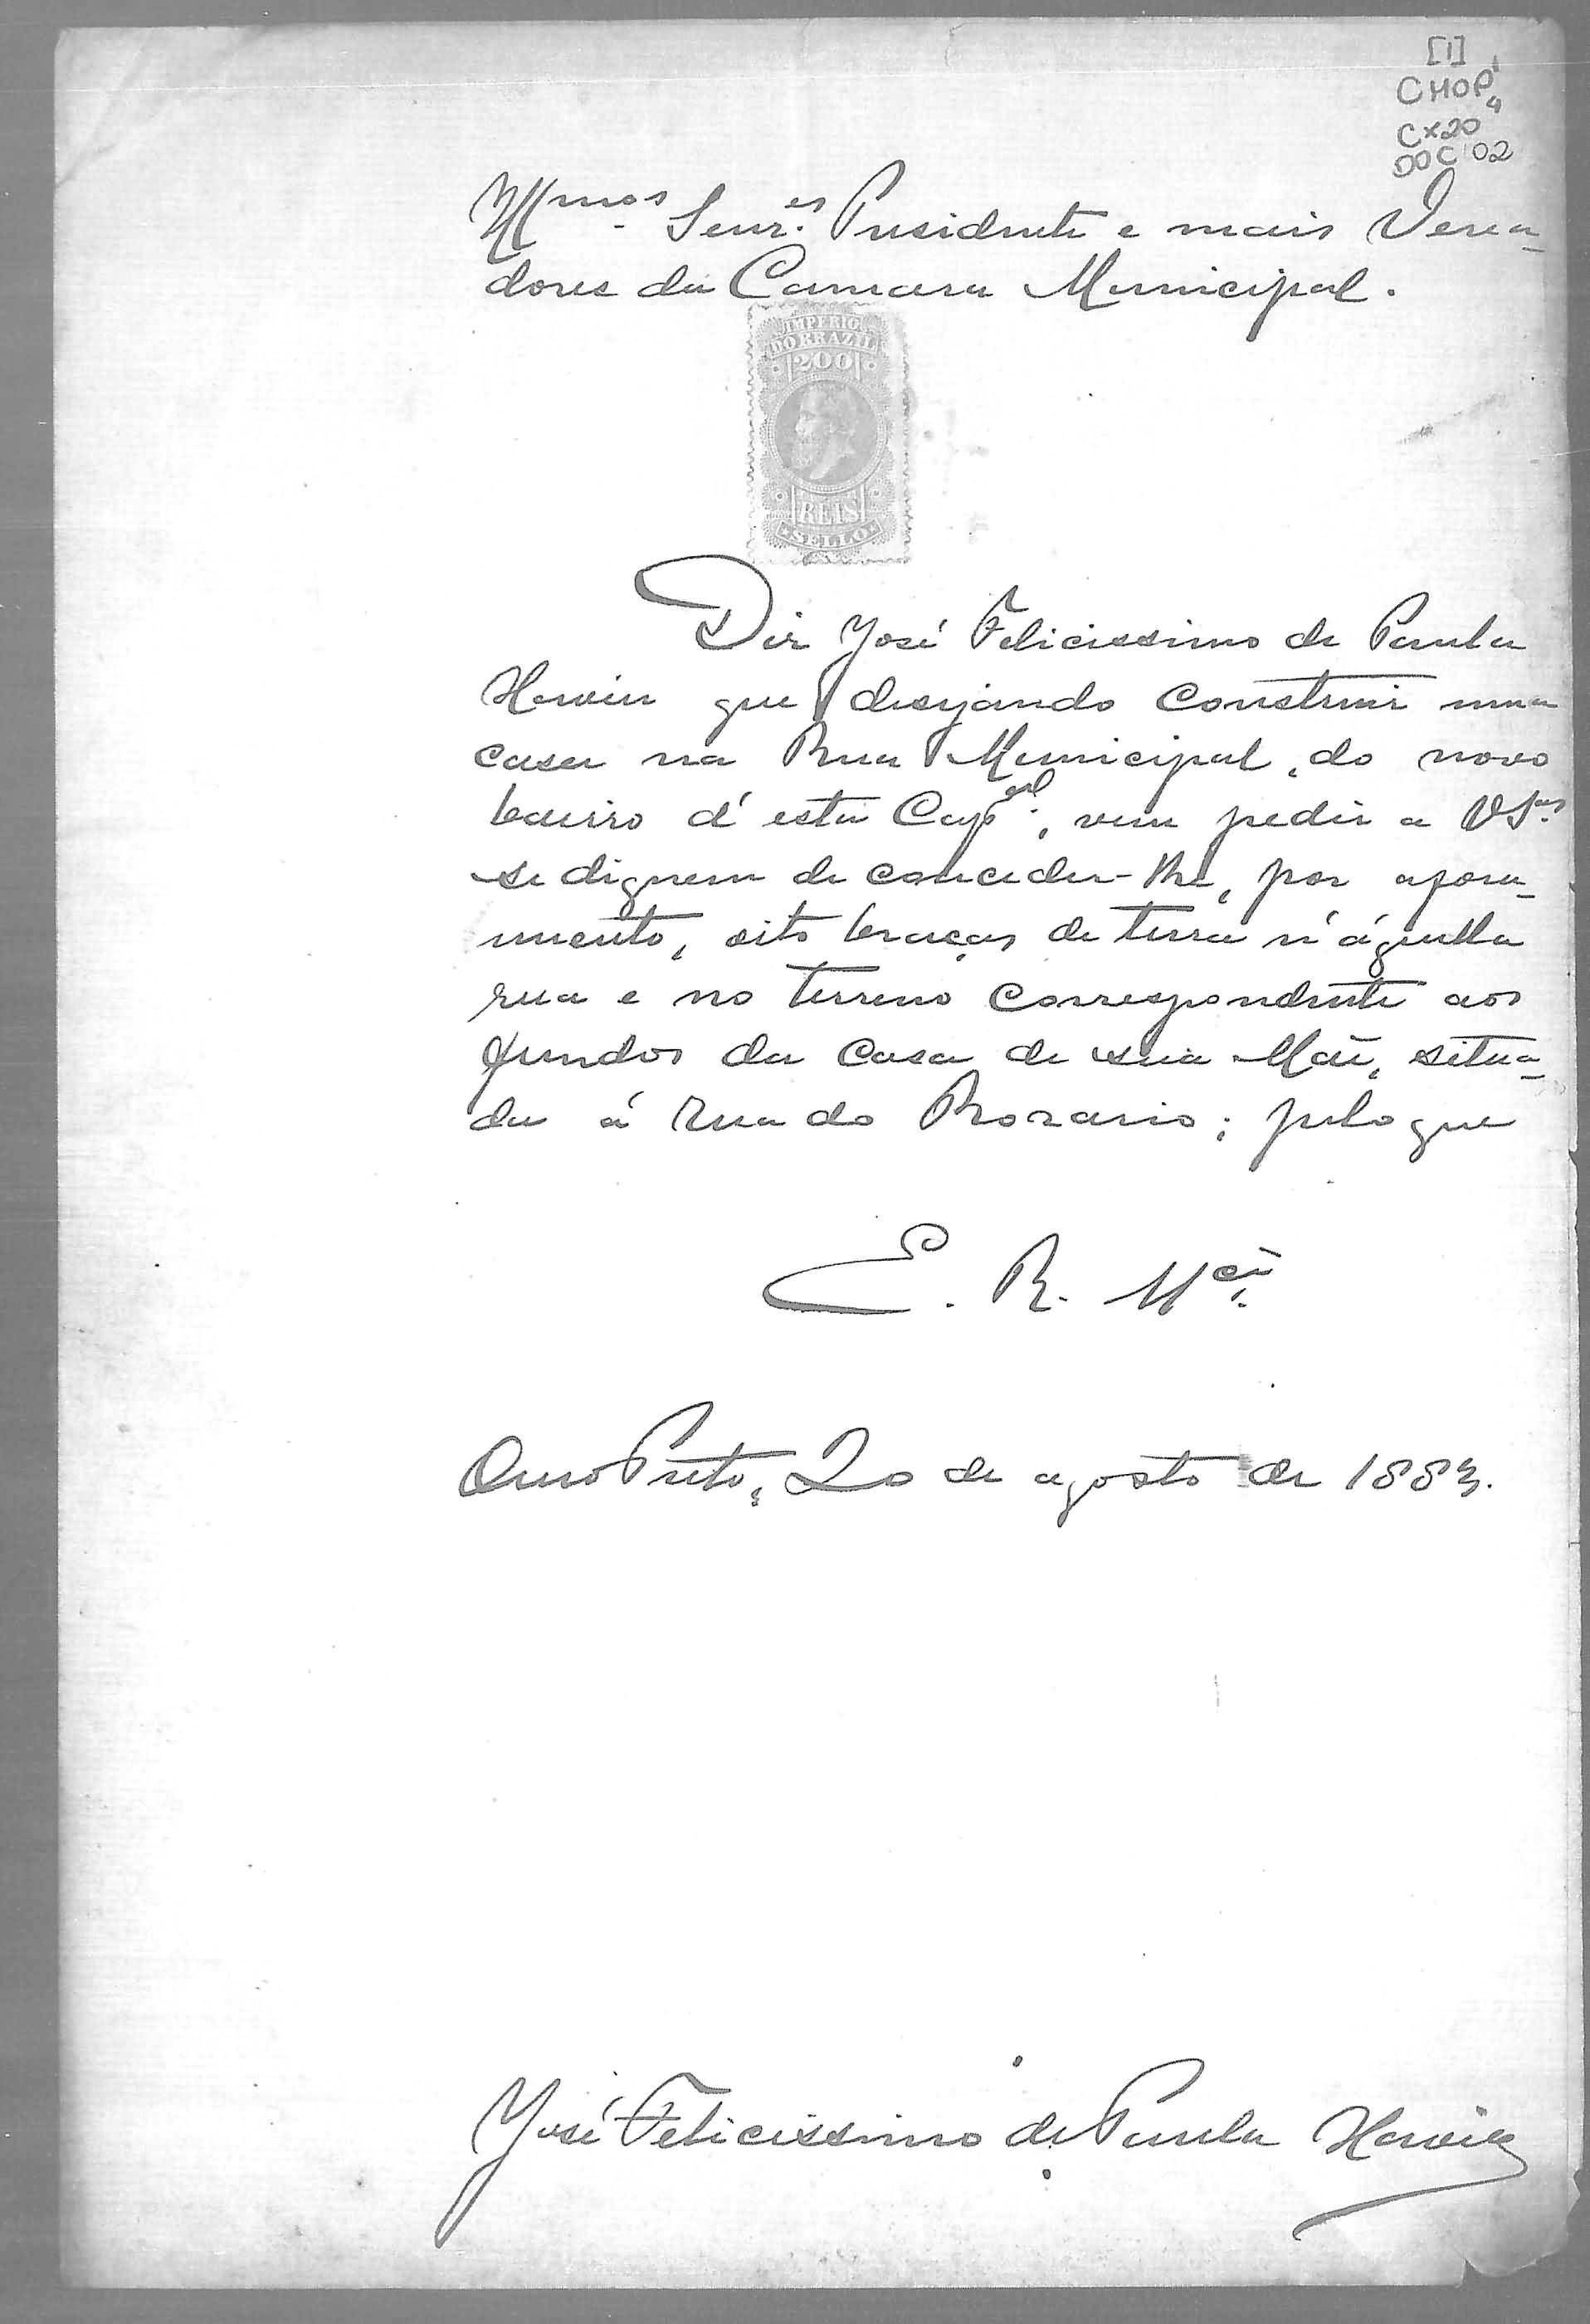 [1]
CMOP
Cx20
DOC 02
Illmos Senres Presidente e mais Verea-
dores da Camara Municipal.
IMPERIO
DO BRAZIL
200
RÉIS
SELLO
Diz José Felicissimo de Paula
que desejando construir uma
casa na Rua Municipal, do novo
bairro d'esta Capal, vem pedir a VSas
se dignem de conceder-lhe, por afora-
mento, oito braças de terra n'áquella
rua e no terreno correspondente aos
fundos da casa de sua Mãe, situa-
da á rua do Rozario; pelo que
E. R. Mcê
Ouro Preto, 20 de agosto de 1883.
José Felicissimo de Paula